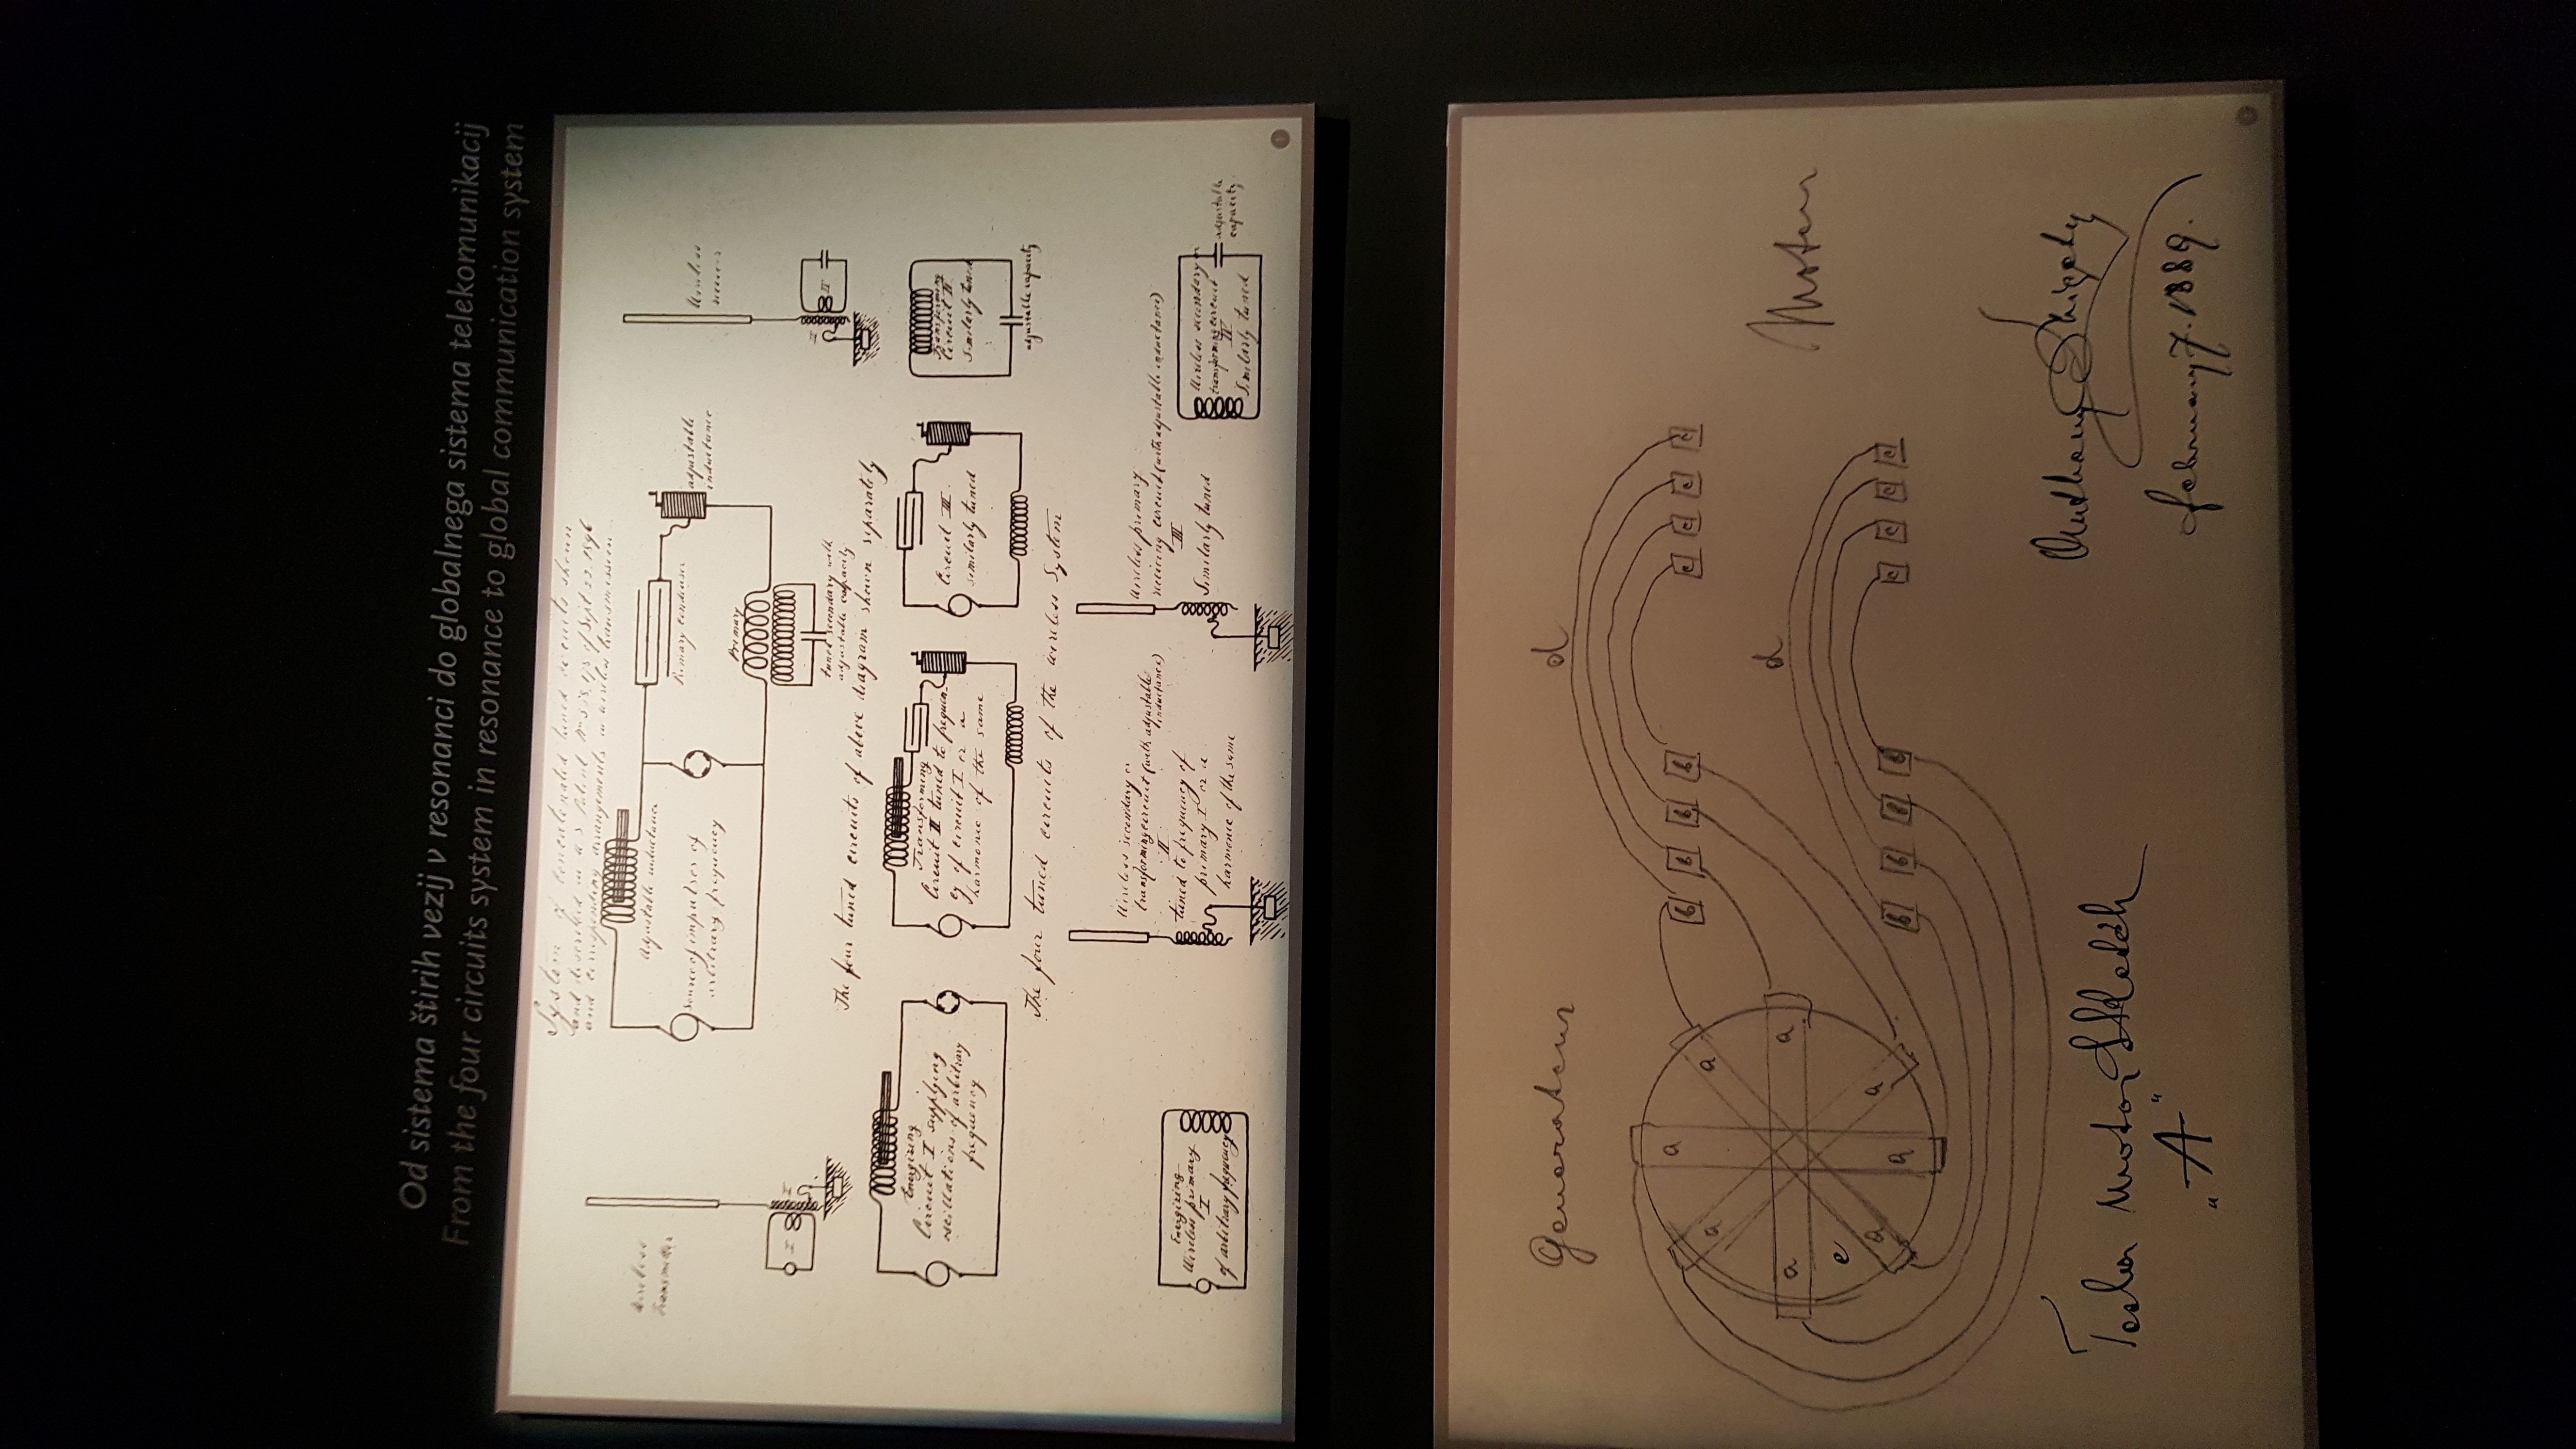 Od sistema štirih vezij v resonanci do globalnega sistema telekomunikacij
From the four circuits system in resonance to global communication system
System of concatenated tuned circuits shown
and described in U S Patent of Sept. 22. 1896
and corresponding arrangements in wireless transmission
Wireless
Transmitter
Adjustable inductance
Source of impulses of
arbitrary frequency
Primary condenser
adjustable
inductance
Wireless
Primary
tuned secondary with
adjustable capacity
I
II
III
IV
The four tuned circuits of above diagram shown separately
Energizing
Circuit I supplying
oscillations of arbitrary
frequency
Transforming
Circuit II tuned to frequen-
cy of circuit I or a
harmonic of the same
Circuit III.
similarly tuned
Transforming
Circuit IV.
Similarly tuned
adjustable capacity
The four tuned circuits of the wireless System
Energizing
Wireless primary
I
of arbitrary frequency
Wireless secondary or
transforming circuit (with adjustable
inductance)
II
tuned to frequency of
primary I or a
harmonic of the same
Wireless primary
recieving circuit (with adjustable inductance)
III
Similarly tuned
Wireless secondary or
transforming circuit
IV
Similarly tuned
adjustable
capacity
Generateur
d
a
a a
b b b b
c c c c
a a
d
Moteur
e
a a
a
b b b b
c c c c
Tesla Motor Sketch
„A"
Anthony Szigety
february 7. 1889.